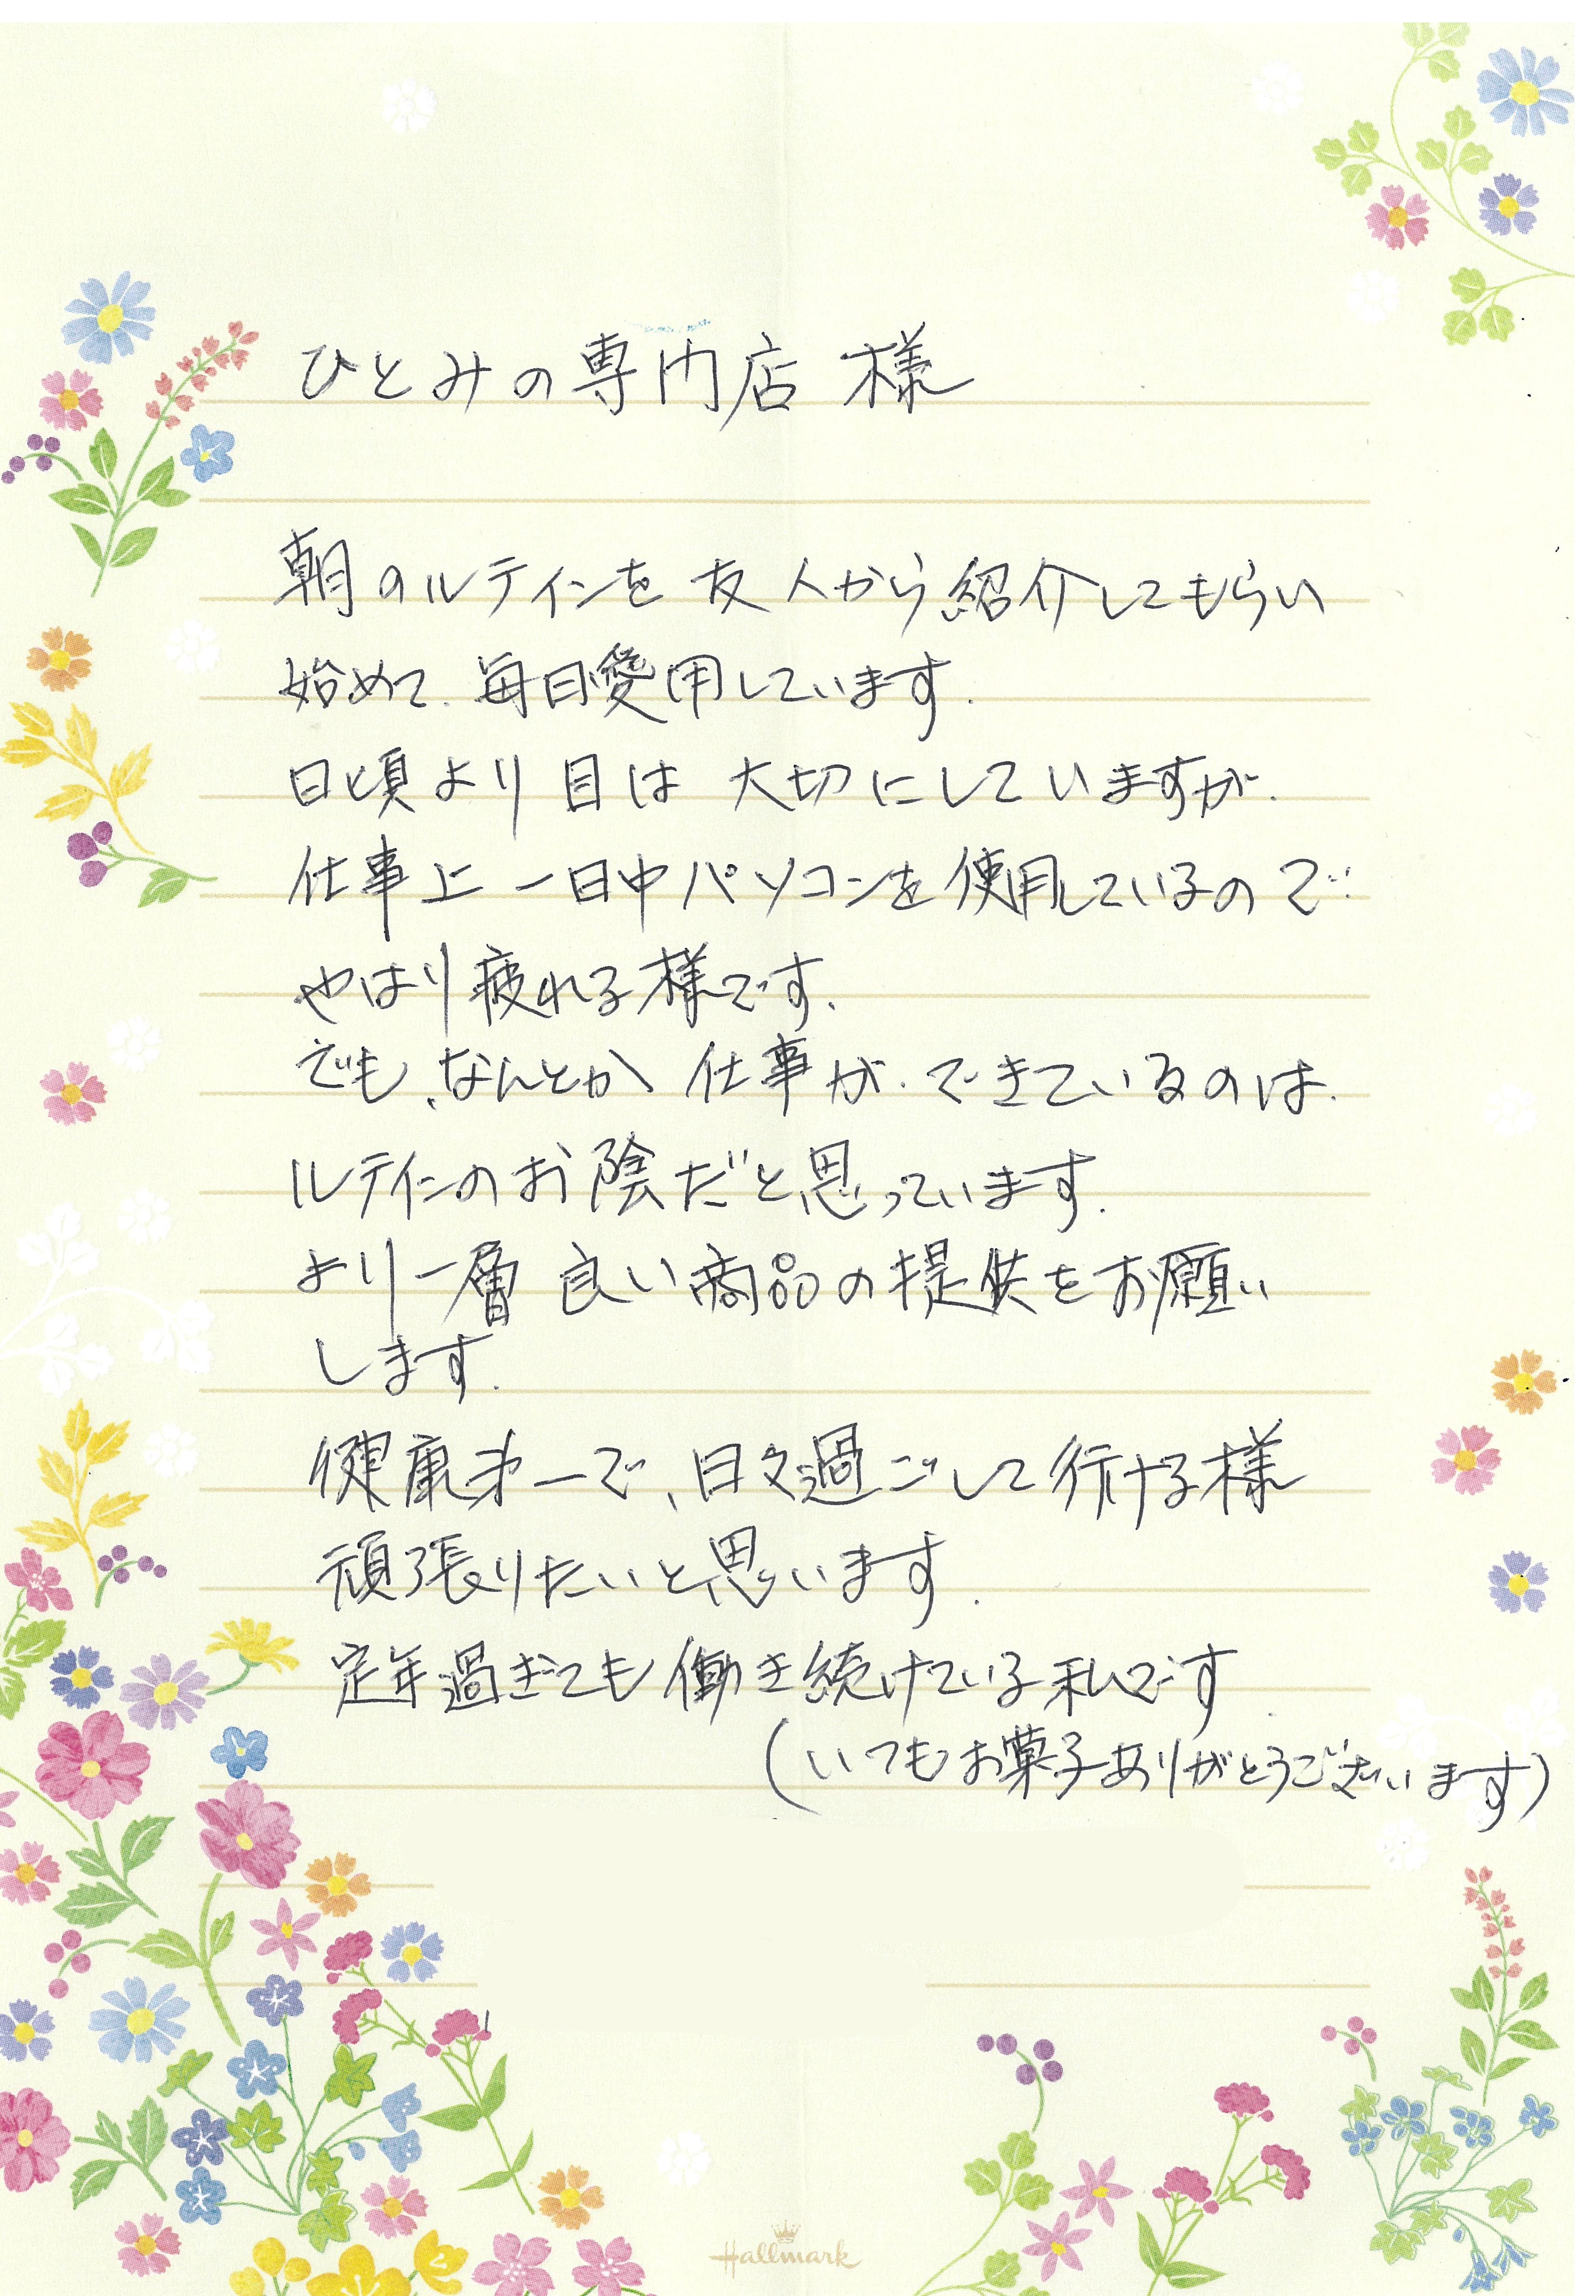 ひとみの専門店 様
朝のルテインを 友人から紹介してもらい
始めて、毎日愛用しています。
日頃より 目は 大切にしていますが、
仕事上 一日中パソコンを使用しているので
やはり疲れる様です。
でも、なんとか 仕事が、できているのは、
ルテインのお陰だと思っています。
より一層 良い商品の提供をお願い
します。
健康第一で、日々過ごして行ける様
頑張りたいと思います。
定年過ぎても働き続けている私です
(いつもお菓子ありがとうございます)
Hallmark